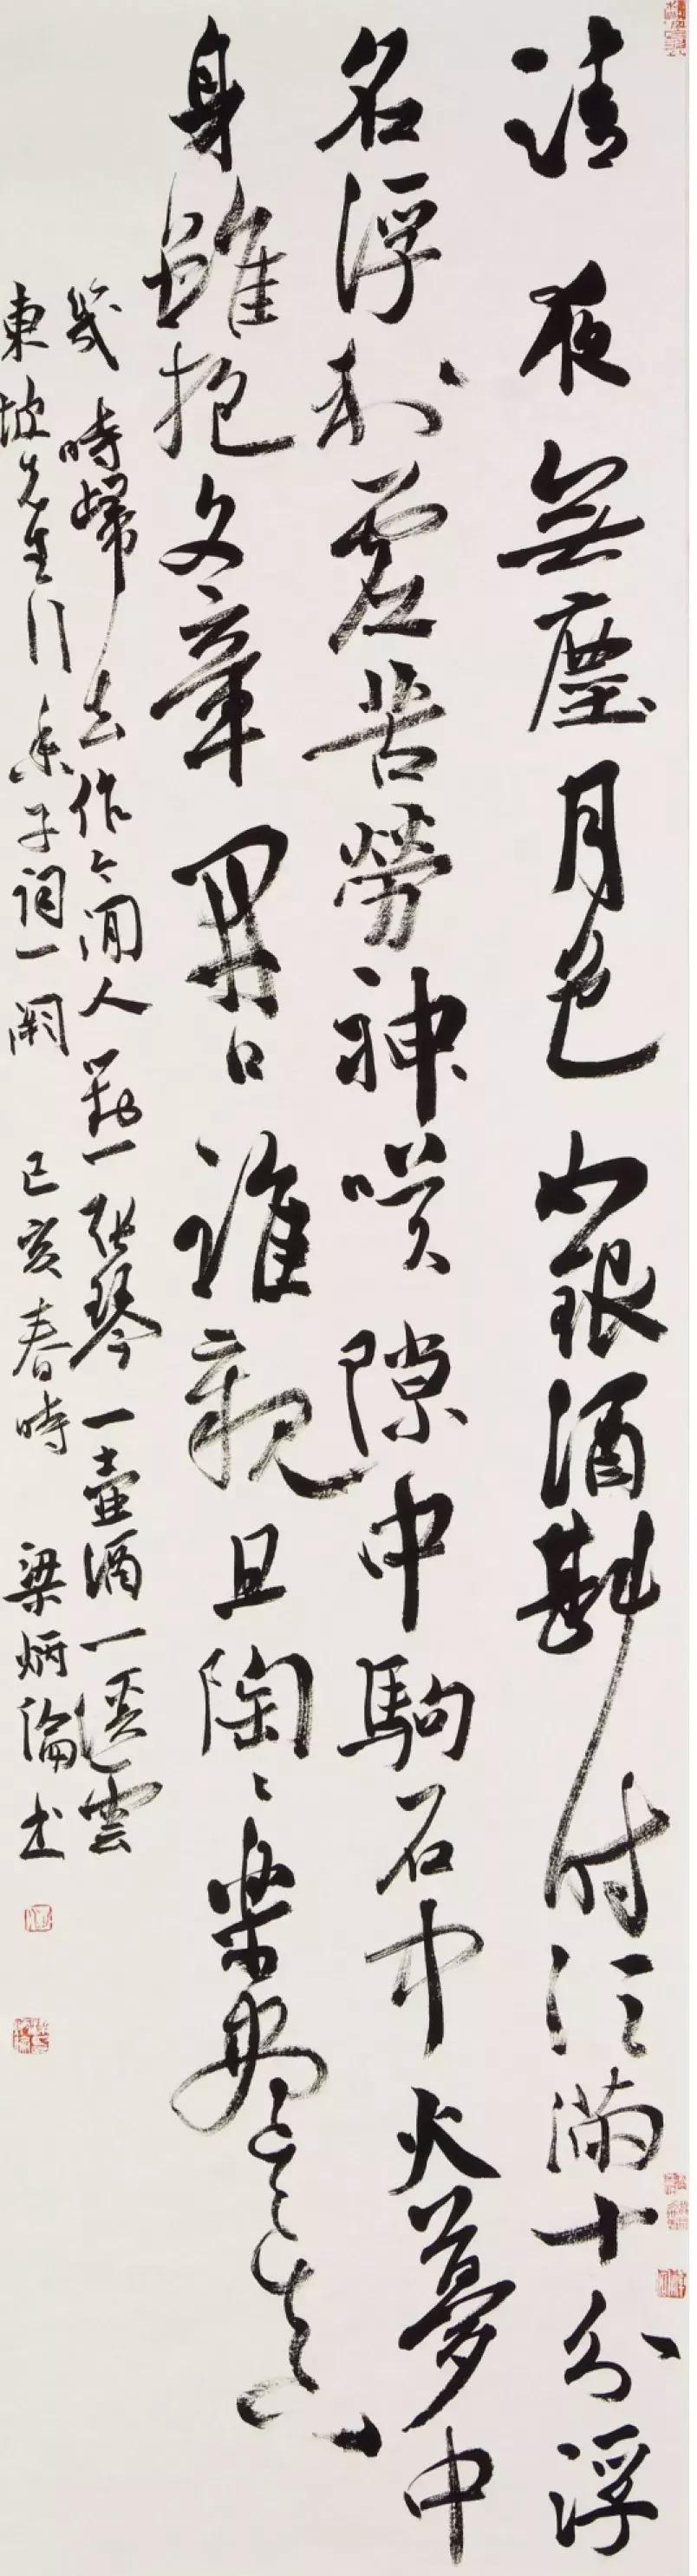 清夜無塵月色如銀酒斟時須滿十分浮
名浮利虛苦勞神嘆隙中駒石中火夢中
身雖抱文章開口誰親且陶〻樂盡天真
幾時歸去作个閒人對一張琴一壺酒一溪雲
東坡先生行香子詞一闋 己亥春時 梁炳倫書